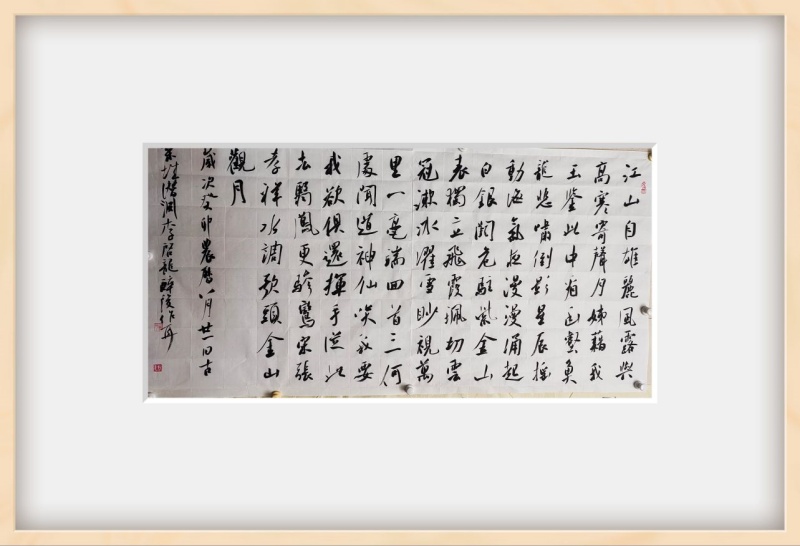 江山自雄麗風露與
高寒寄聲月姊藉我
玉鑒此中看幽壑魚
龍悲嘯倒影星辰搖
動海氣夜漫漫涌起
白銀闕危駐紫金山
表獨立飛霞珮切雲
冠漱冰濯雪眇視萬
里一毫端回首三何
處聞道神仙笑我要
我欲俱還揮手從此
去翳鳳更驂鸞宋張
孝祥水調歌頭金山
觀月
歲次癸卯農曆八月廿一日古
李啓龍醉後作